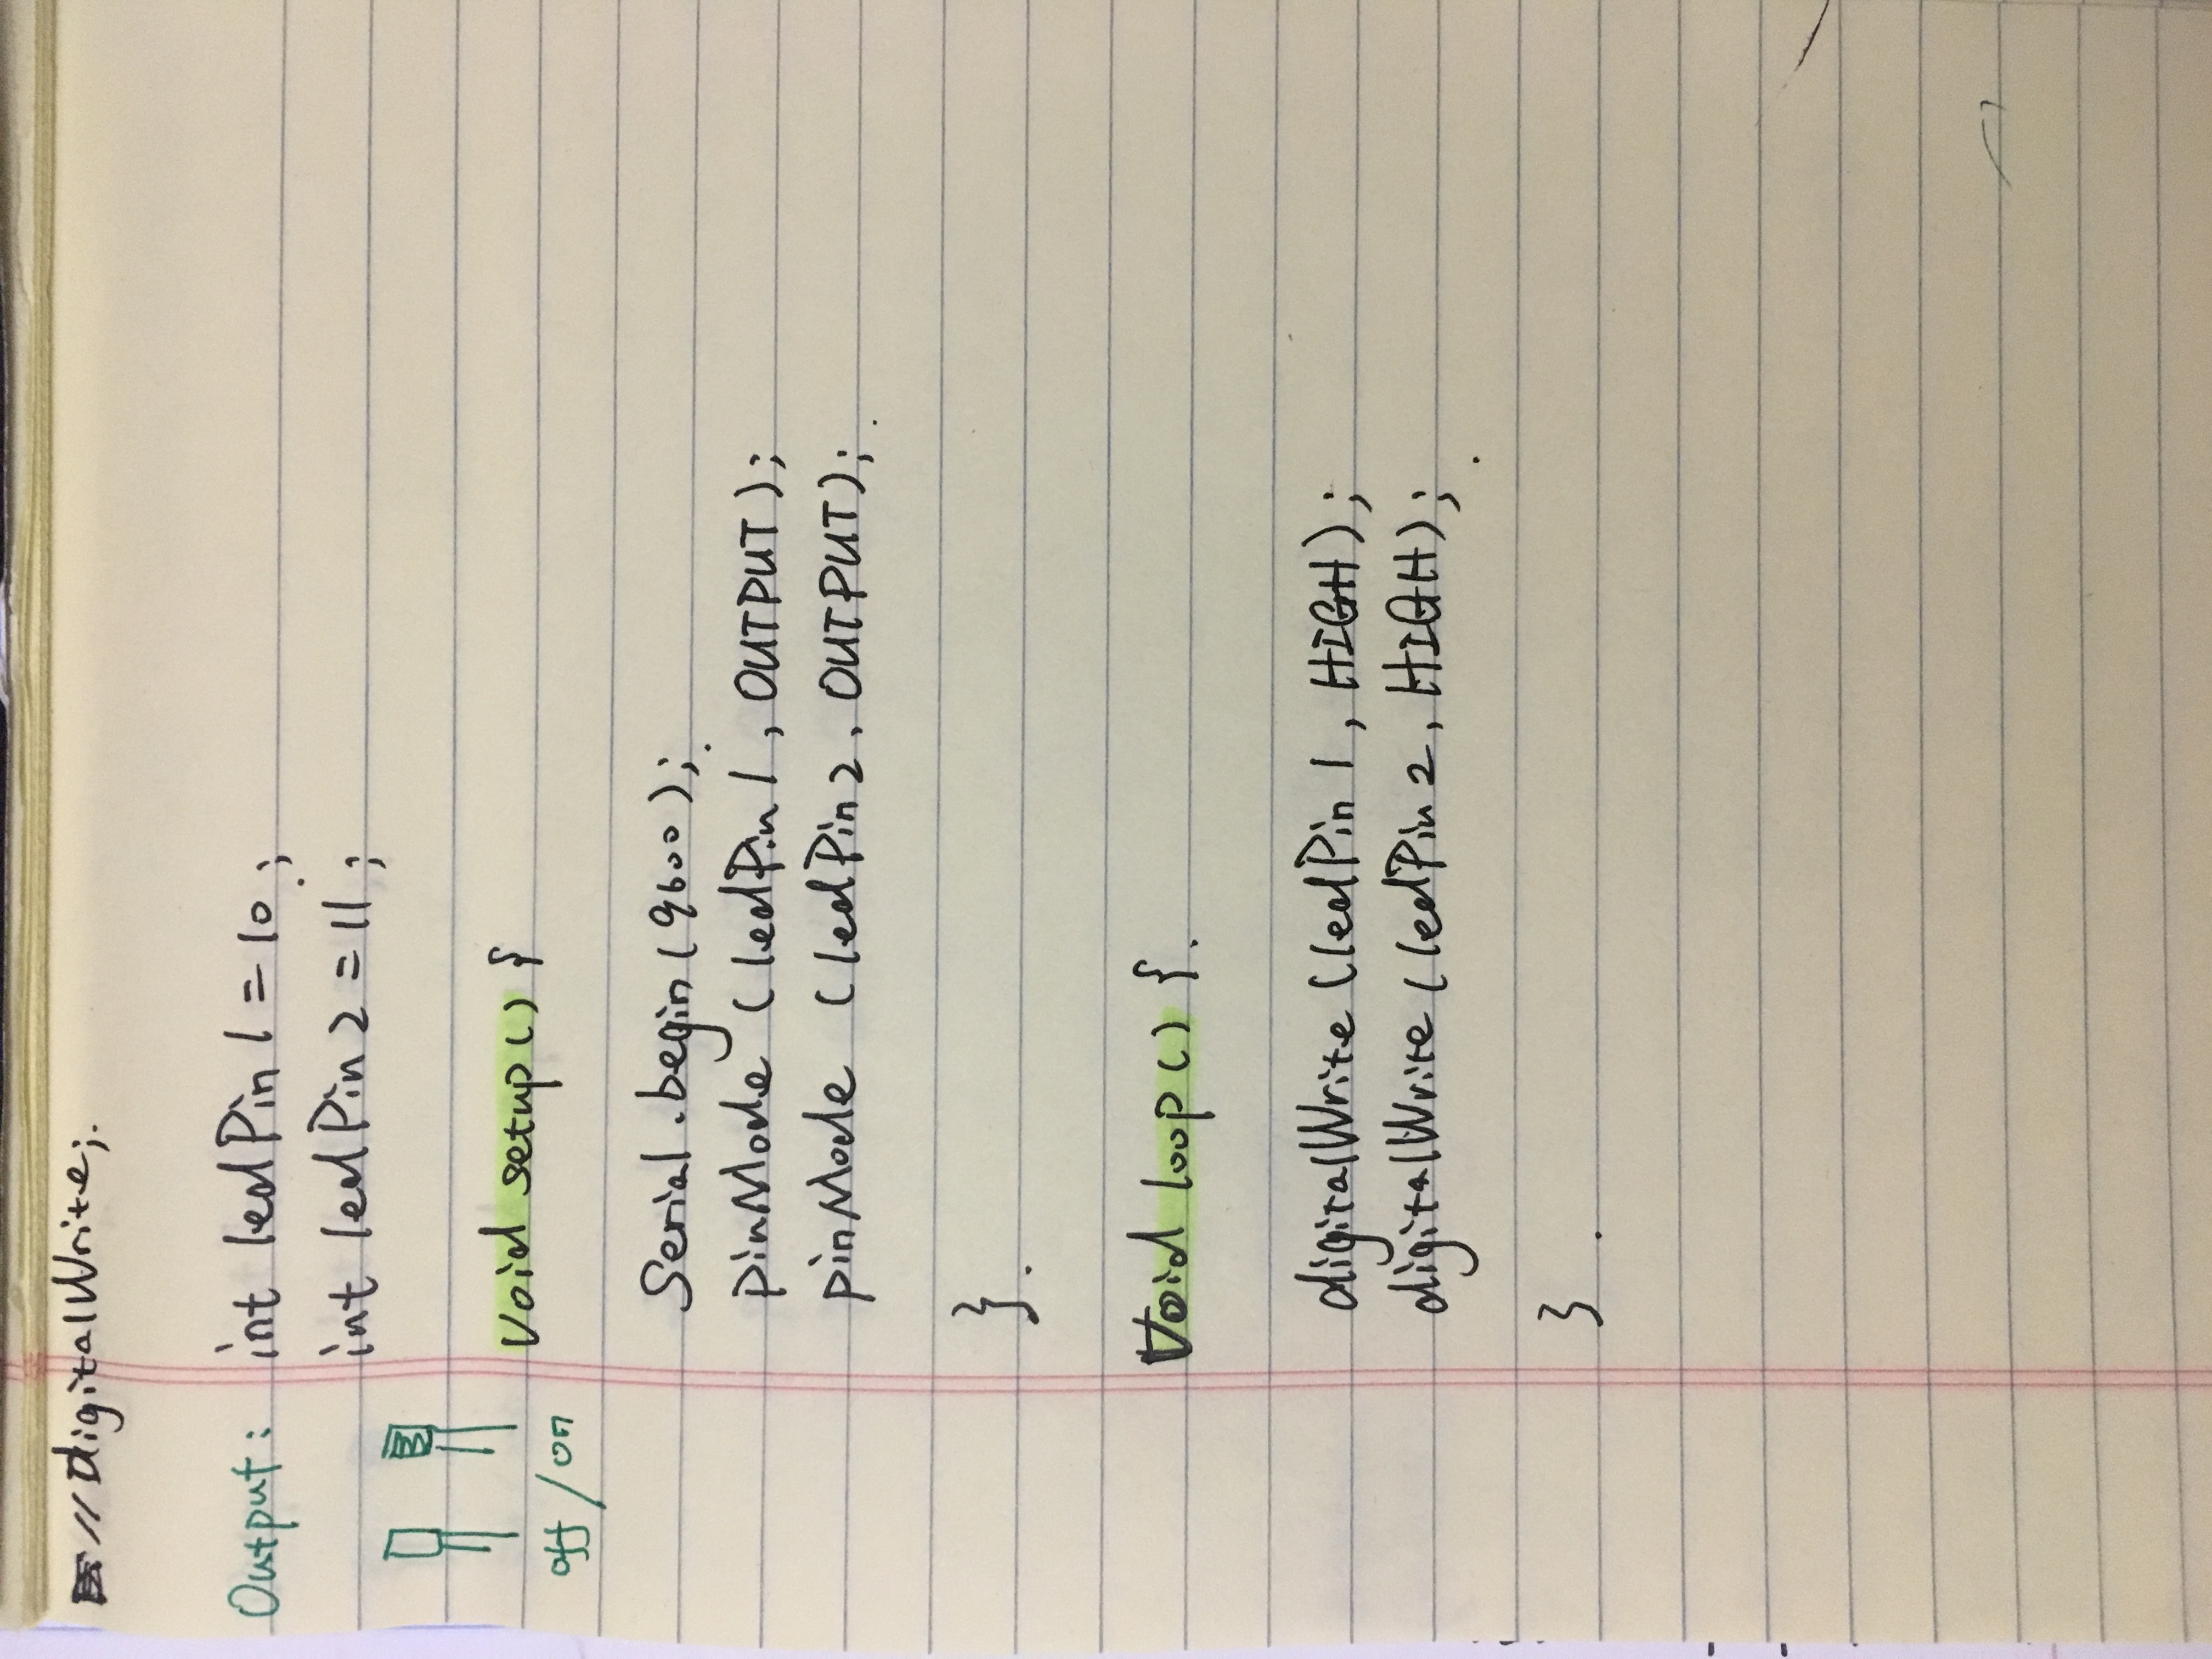 // digitalWrite;.
Output: int ledPin1 = 10;
int ledPin2 = 11;
off / on
void setup() {
Serial.begin(9600);
pinMode (ledPin1, OUTPUT);
pinMode (ledPin2, OUTPUT);
}.
Void loop() {.
digitalWrite (ledPin1, HIGH);
digitalWrite (ledPin2, HIGH);
} .